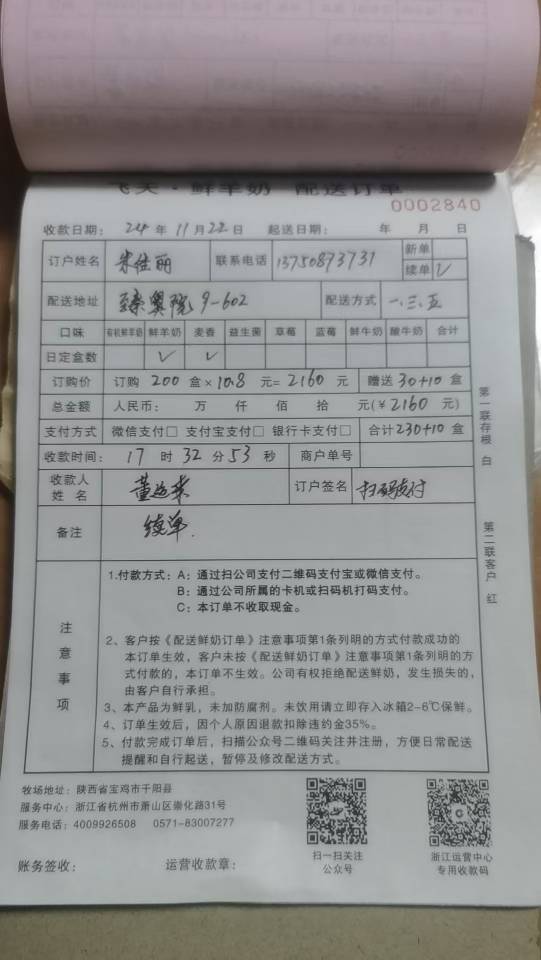 飞天·鲜羊奶 配送订单
0002840
收款日期： 24 年 11 月 22 日 起送日期： 年 月 日
订户姓名 朱佳丽 联系电话 13750873731 新单
续单 √
配送地址 臻翼院 9-602 配送方式 一、三、五
口味 有机鲜羊奶 鲜羊奶 麦香 益生菌 草莓 蓝莓 鲜牛奶 酸牛奶 合计
日定盒数 √ √
订购价 订购 200 盒 × 10.8 元= 2160 元 赠送 30+10 盒
总金额 人民币： 万 仟 佰 拾 元(￥2160 元)
支付方式 微信支付□ 支付宝支付□ 银行卡支付□ 合计230+10 盒
收款时间： 17 时 32 分 53 秒 商户单号
收款人
姓 名 董 订户签名 扫码支付
备注 续单.
注意事项
1.付款方式：A：通过扫公司支付二维码支付宝或微信支付。
B：通过公司所属的卡机或扫码机打码支付。
C：本订单不收取现金。
2、客户按《配送鲜奶订单》注意事项第1条列明的方式付款成功的
本订单生效，客户未按《配送鲜奶订单》注意事项第1条列明的方
式付款的，本订单不生效。公司有权拒绝配送鲜奶，发生损失的，
由客户自行承担。
3、本产品为鲜乳，未加防腐剂。未饮用请立即存入冰箱2-6℃保鲜。
4、订单生效后，因个人原因退款扣除违约金35%。
5、付款完成订单后，扫描公众号二维码关注并注册，方便日常配送
提醒和自行起送，暂停及修改配送方式。
第一联存根 白
第二联客户 红
牧场地址：陕西省宝鸡市千阳县
服务中心：浙江省杭州市萧山区崇化路31号
服务电话：4009926508 0571-83007277
扫一扫关注
公众号
浙江运营中心
专用收款码
账务签收： 运营收款章：